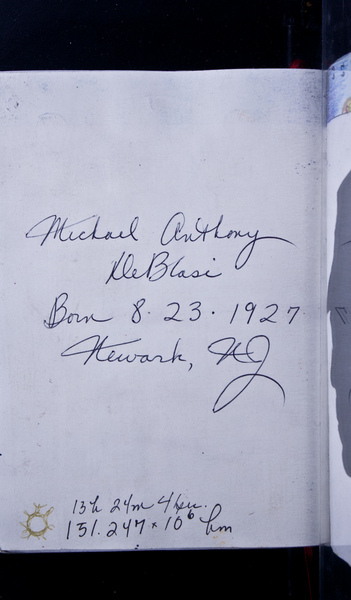 Michael Anthony
DeBlasi
Born 8·23·1927
Newark, NJ
13h 24m 4sec.
151.247 × 10⁶ km